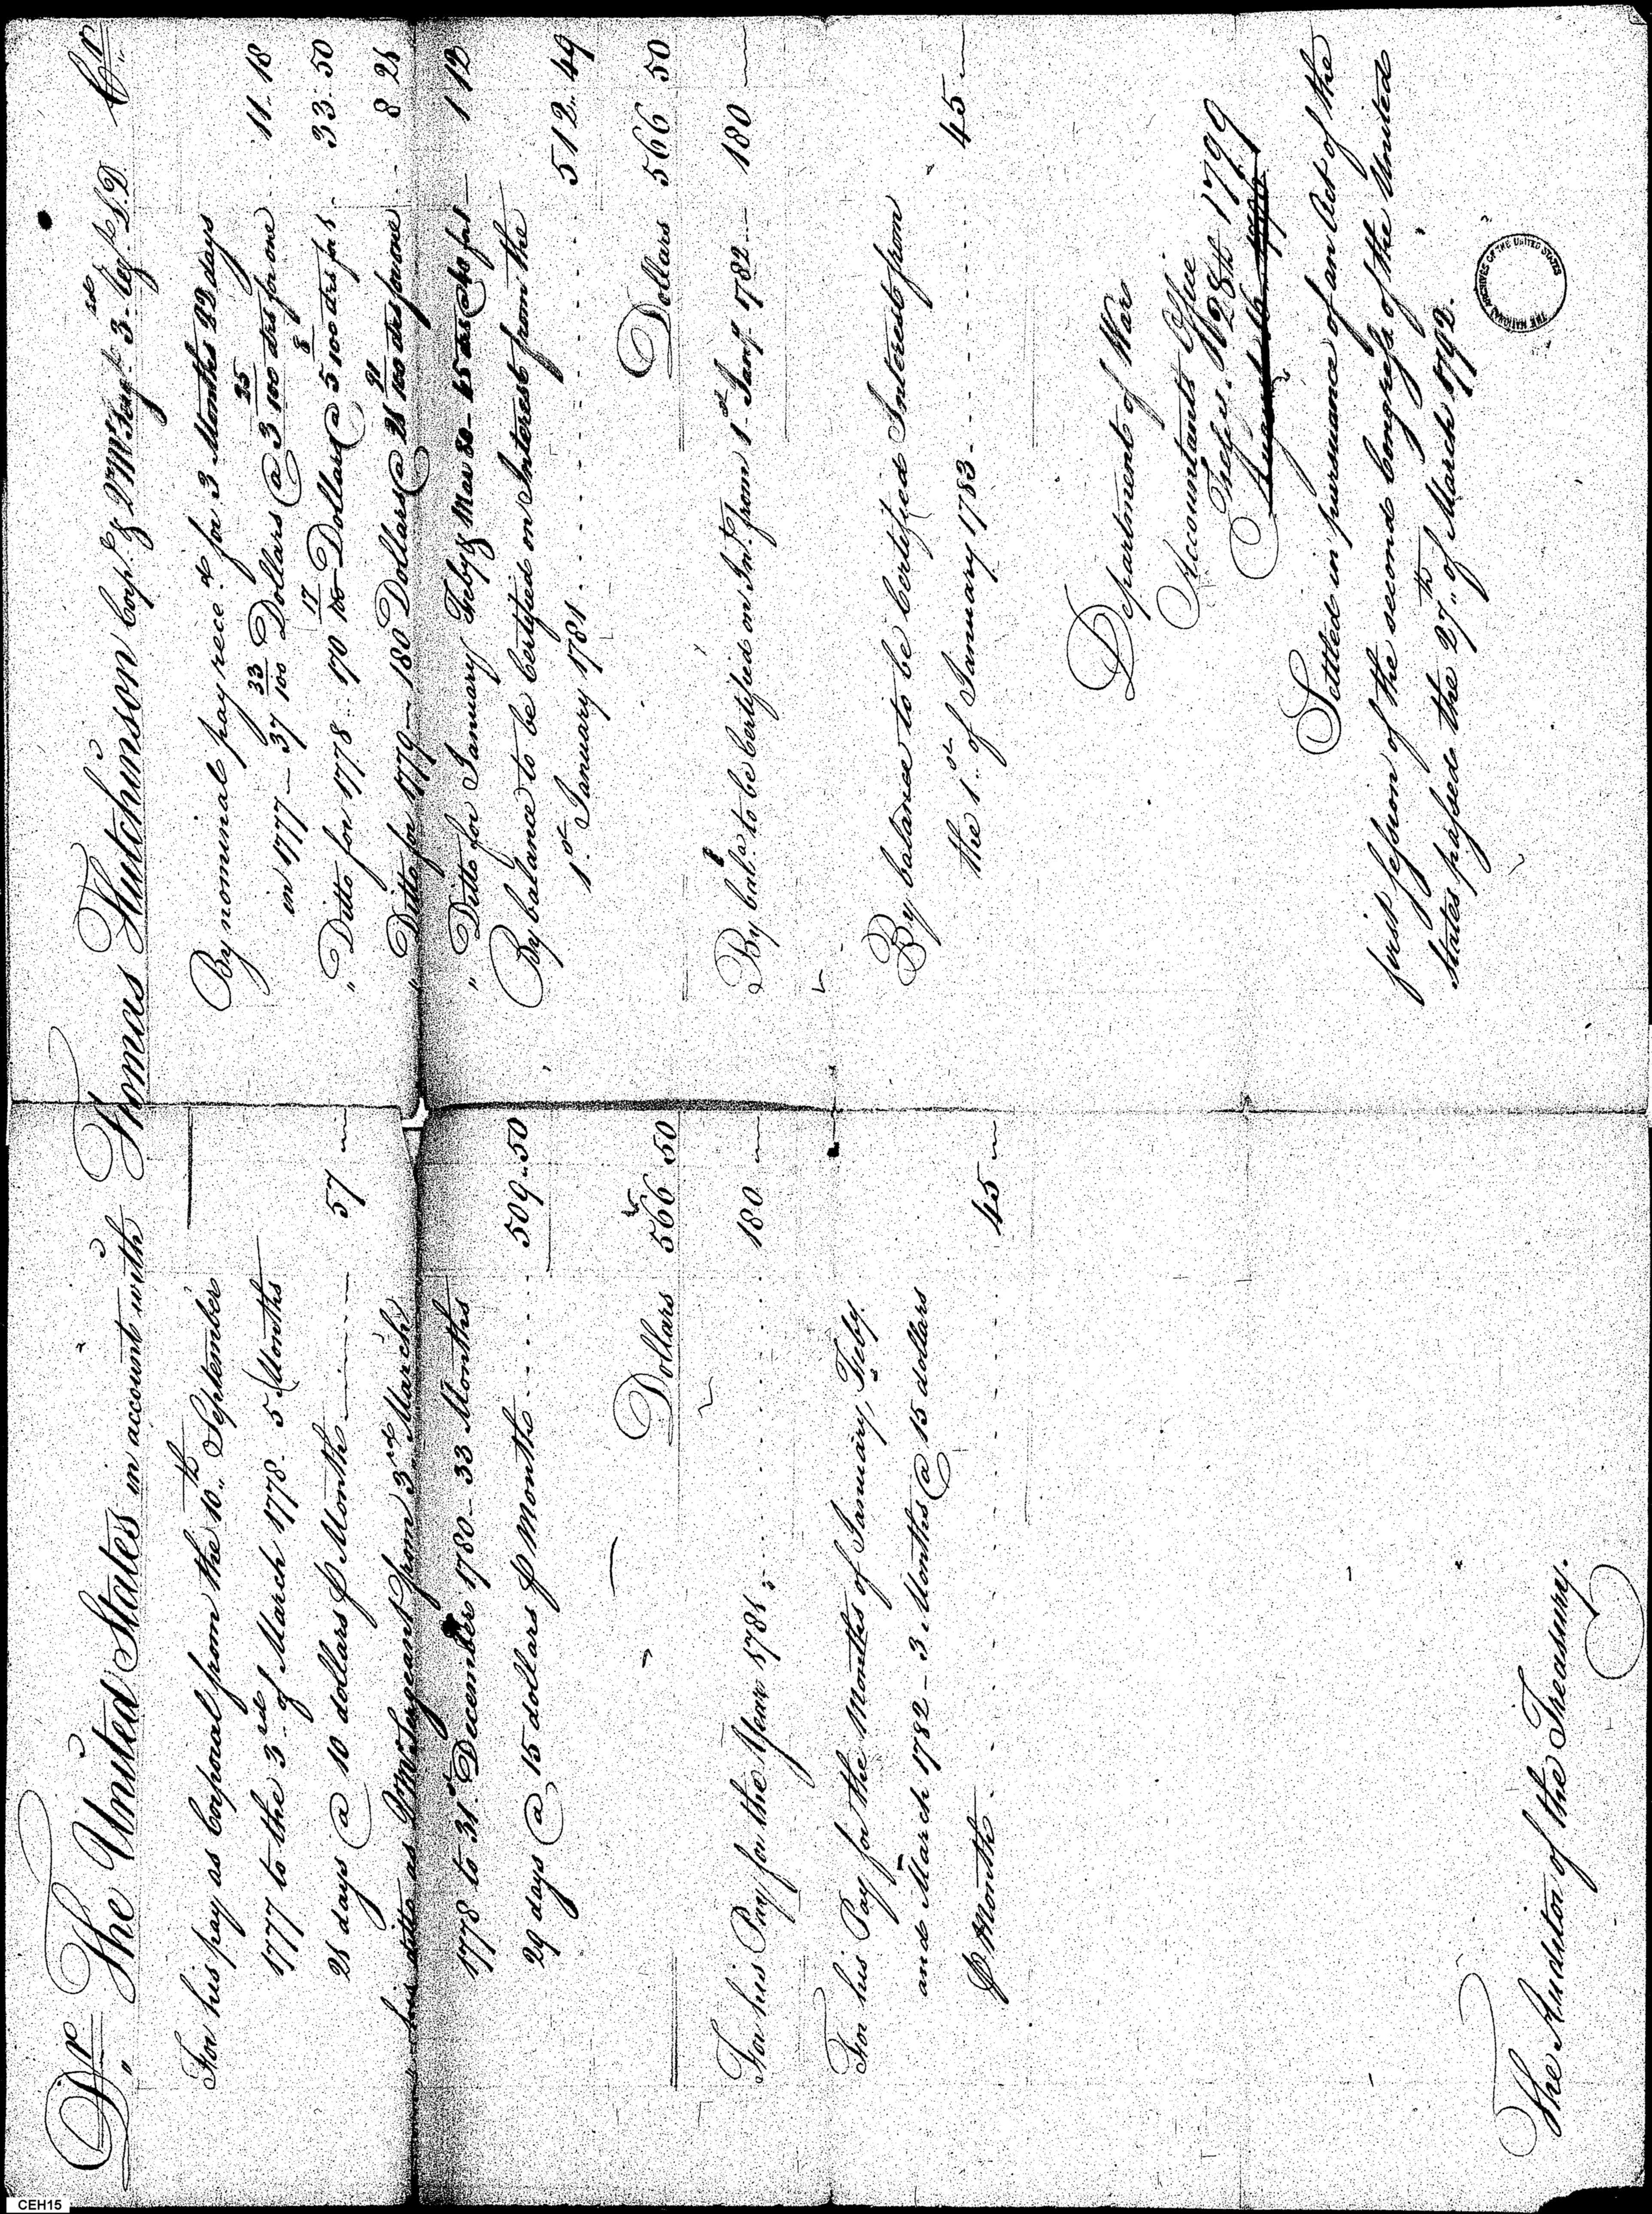 Dr. The United States in account with Thomas Hutchinson Corpl. & Qr Mr Sergt. 3rd Regt. L.D. Cr.
For his pay as Corporal from the 10th September
1777 to the 3rd of March 1778. 5 Months
21 days @ 10 dollars ⅌ Month 57
" his ditto as Qr Mr Sergeant from 3rd March
1778 to 31st December 1780 - 33 Months
29 days @ 15 dollars ⅌ Month 509.50
Dollars 566 50
For his Pay for the Year 1781 180
For his Pay for the Months of January, Feby.
and March 1782 - 3 Months @ 15 dollars
⅌ Month 45
The Auditor of the Treasury.
By nominal pay rece.d for 3 Months 22 days
in 1777 - 37 33/100 Dollars @ 3 35/100 drs for one 11.18
" Ditto for 1778 170 17/100 Dollars @ 5 8/100 drs for 1 33.50
" Ditto for 1779 - 180 Dollars @ 21 91/100 drs for one 8 21
" Ditto for January Feby & Mar 80 - 45 drs @ 40 for 1 1 12
By balance to be Certified on Interest from the
1st January 1781 512.49
Dollars 566 50
By bal.e to be Certified on Int. from 1st Jany 1782 180
By balance to be Certified Interest from
the 1st of January 1783 45
Department of War
Accountants Office
Feby. 28th 1799
Settled in pursuance of an Act of the
first session of the second Congress of the United
States passed the 27th of March 1792.
THE NATIONAL ARCHIVES OF THE UNITED STATES
CEH15